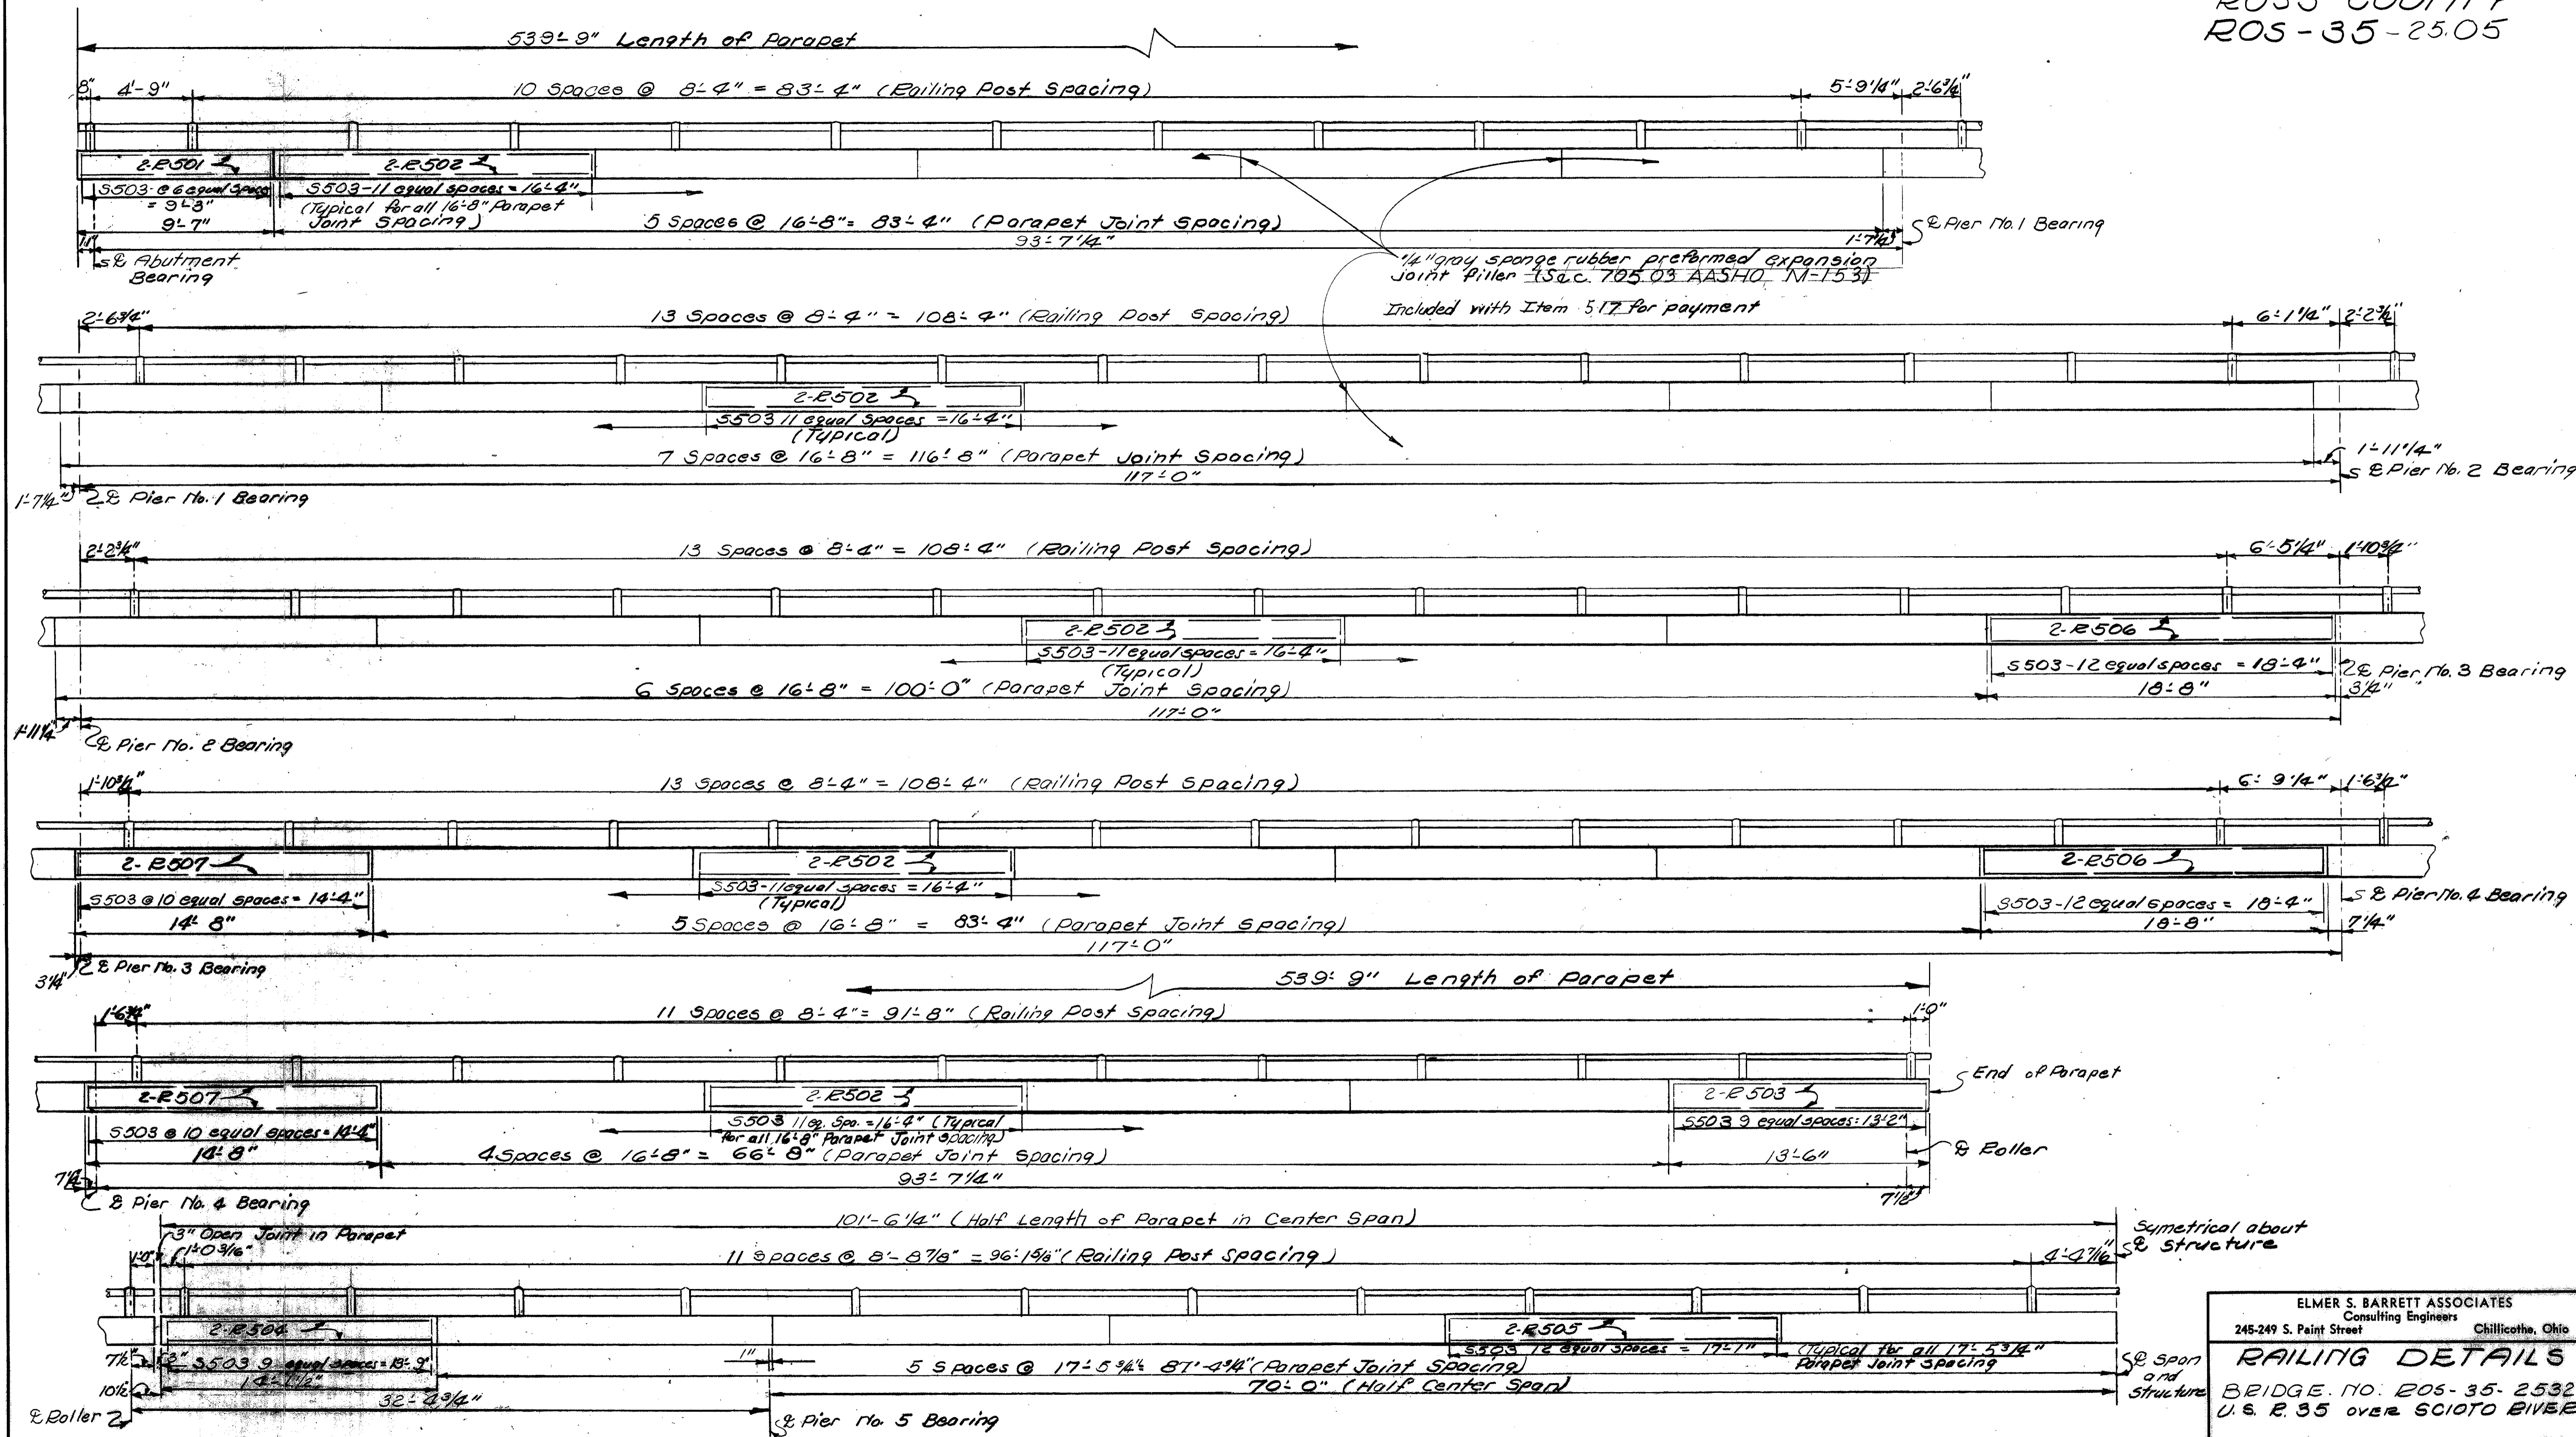 ROSS COUNTY
ROS-35-25.05
539'-9" Length of Parapet
8" 4'-9" 10 Spaces @ 8'-4" = 83'-4" (Railing Post Spacing) 5'-9 1/4" 2'-6 3/4"
2-R501 2-R502
S503-@ 6 equal space S503-11 equal spaces = 16'-4"
= 9'-3" (Typical for all 16'-8" Parapet
9'-7" Joint Spacing) 5 Spaces @ 16'-8" = 83'-4" (Parapet Joint Spacing)
11" 93'-7 1/4" 1'-7 1/4" ℄ Pier No. 1 Bearing
℄ Abutment
Bearing
1/4" gray sponge rubber preformed expansion
joint filler (Sec. 705.03 AASHO M-153)
Included with Item 517 for payment
2'-6 3/4" 13 Spaces @ 8'-4" = 108'-4" (Railing Post Spacing) 6'-1 1/4" 2'-2 3/4"
2-R502
S503 11 equal spaces = 16'-4"
(Typical)
7 Spaces @ 16'-8" = 116'-8" (Parapet Joint Spacing) 1'-11 1/4"
117'-0" ℄ Pier No. 2 Bearing
1'-7 1/4" ℄ Pier No. 1 Bearing
2'-2 3/4" 13 Spaces @ 8'-4" = 108'-4" (Railing Post Spacing) 6'-5 1/4" 1'-10 3/4"
2-R502 2-R506
S503-11 equal spaces = 16'-4" S503-12 equal spaces = 18'-4" ℄ Pier No. 3 Bearing
(Typical)
6 Spaces @ 16'-8" = 100'-0" (Parapet Joint Spacing) 18'-8" 3 1/4"
117'-0"
1'-11 1/4" ℄ Pier No. 2 Bearing
1'-10 3/4" 13 Spaces @ 8'-4" = 108'-4" (Railing Post Spacing) 6'-9 1/4" 1'-6 3/4"
2-R507 2-R502 2-R506
S503 @ 10 equal spaces = 14'-4" S503-11 equal spaces = 16'-4" S503-12 equal spaces = 18'-4" ℄ Pier No. 4 Bearing
(Typical)
14'-8" 5 Spaces @ 16'-8" = 83'-4" (Parapet Joint Spacing) 18'-8" 7 1/4"
117'-0"
3 1/4" ℄ Pier No. 3 Bearing
539'-9" Length of Parapet
1'-6 3/4" 11 Spaces @ 8'-4" = 91'-8" (Railing Post Spacing) 1'-0"
End of Parapet
2-R507 2-R502 2-R503
S503 @ 10 equal spaces = 14'-4" S503 11 eq. Spa. = 16'-4" (Typical S503 9 equal spaces = 13'-2"
for all 16'-8" Parapet Joint spacing)
14'-8" 4 Spaces @ 16'-8" = 66'-8" (Parapet Joint Spacing) 13'-6" ℄ Roller
7 1/4" 93'-7 1/4" 7 1/2"
℄ Pier No. 4 Bearing
101'-6 1/4" (Half Length of Parapet in Center Span) Symetrical about
℄ structure
3" Open Joint in Parapet
1'-0" 1'-0 3/16" 11 Spaces @ 8'-8 7/8" = 96'-1 5/8" (Railing Post Spacing) 4'-4 7/16"
2-R504 2-R505
7 1/2" 3" S503 9 equal spaces = 13'-9" 1" S503 12 equal spaces = 17'-1" (Typical for all 17'-5 3/4"
Parapet Joint spacing
14'-1 1/2" 5 Spaces @ 17'-5 3/4" = 87'-4 3/4" (Parapet Joint Spacing) ℄ Span
and
structure
10 1/2" 32'-4 3/4" 70'-0" (Half Center Span)
℄ Roller ℄ Pier No. 5 Bearing
ELMER S. BARRETT ASSOCIATES
Consulting Engineers
245-249 S. Paint Street Chillicothe, Ohio
RAILING DETAILS
BRIDGE. NO. ROS-35-2532
U.S. R. 35 OVER SCIOTO RIVER